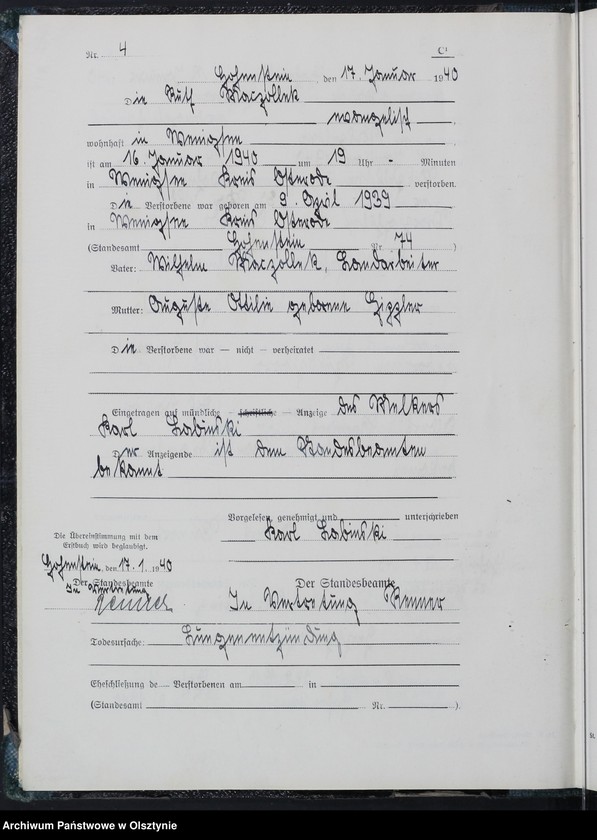 Nr. 4
C¹
Hohenstein, den 17. Januar 1940
Die Ruth Maczollek
evangelisch
wohnhaft in Wenigsee
ist am 16. Januar 1940 um 19 Uhr - Minuten
in Wenigsee Kreis Osterode verstorben.
Die Verstorbene war geboren am 9. April 1939
in Wenigsee Kreis Osterode
(Standesamt Hohenstein Nr. 74)
Vater: Wilhelm Maczollek, Landarbeiter
Mutter: Auguste Ottilie geborene
Die Verstorbene war — nicht — verheiratet
Eingetragen auf mündliche — schriftliche — Anzeige des Melkers
Karl Labinski
Der Anzeigende ist dem Standesbeamten
bekannt
Vorgelesen, genehmigt und unterschrieben
Karl Labinski
Die Übereinstimmung mit dem
Erstbuch wird beglaubigt.
Hohenstein, den 17.1.1940
Der Standesbeamte
In Vertretung
Renner
Der Standesbeamte
In Vertretung Renner
Todesursache: Lungenentzündung
Eheschließung de Verstorbenen am in
(Standesamt Nr. ).
Archiwum Państwowe w Olsztynie